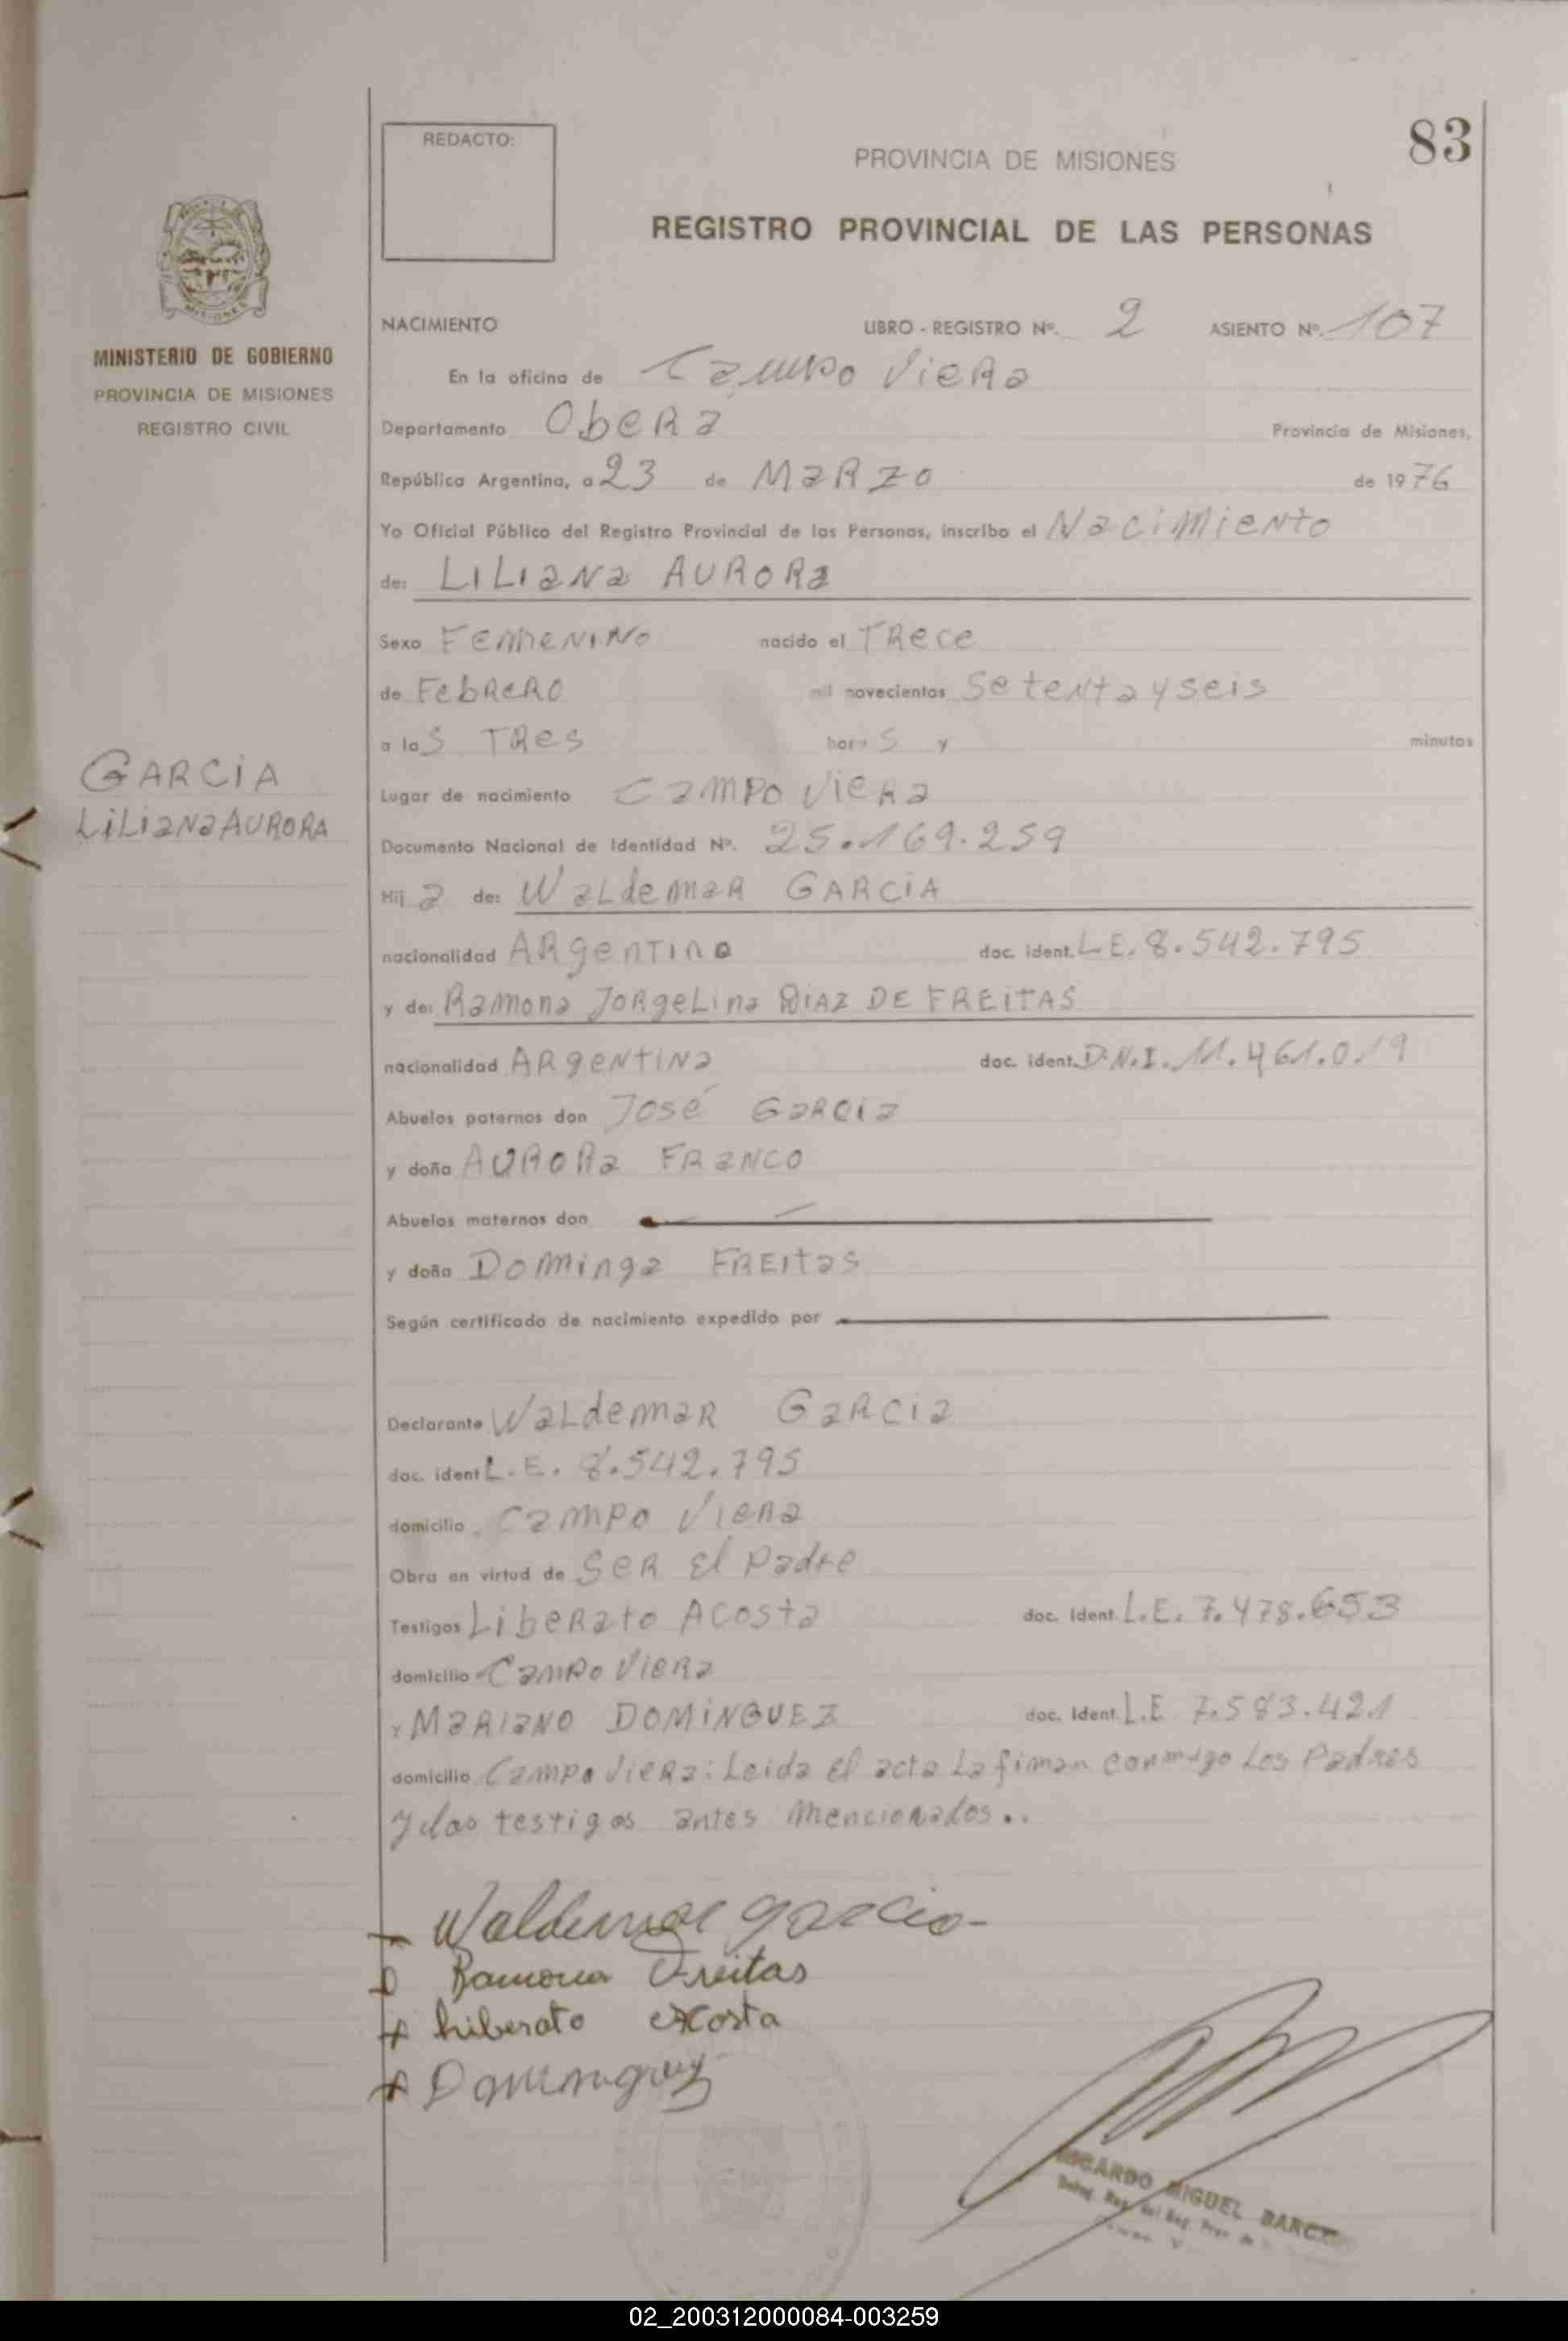 REDACTO:
83
PROVINCIA DE MISIONES
REGISTRO PROVINCIAL DE LAS PERSONAS
MISIONES
MINISTERIO DE GOBIERNO
PROVINCIA DE MISIONES
REGISTRO CIVIL
GARCIA
LILIANA AURORA
NACIMIENTO LIBRO - REGISTRO Nº. 2 ASIENTO Nº. 107
En la oficina de Campo Viera
Departamento Oberá Provincia de Misiones,
República Argentina, a 23 de MARZO de 1976
Yo Oficial Público del Registro Provincial de las Personas, inscribo el Nacimiento
de: LILIANA AURORA
Sexo FEMENINO nacido el TRece
de FebRERO mil novecientos Setenta y seis
a las TRes horas y minutos
Lugar de nacimiento Campo Viera
Documento Nacional de Identidad Nº. 25.169.259
Hija de: Waldemar GARCIA
nacionalidad ARgentina doc. ident. L.E. 8.542.795
y de: Ramona Jorgelina DIAZ DE FREITAS
nacionalidad ARgentina doc. ident. D.N.I. 11.461.019
Abuelos paternos don José Garcia
y doña AURORA FRANCO
Abuelos maternos don
y doña Dominga FREITAS
Según certificado de nacimiento expedido por
Declarante Waldemar Garcia
doc. ident L.E. 8.542.795
domicilio Campo Viera
Obra en virtud de SER El Padre
Testigos Liberato Acosta doc. ident. L.E. 7.478.653
domicilio Campo Viera
y MARIANO DOMINGUEZ doc. ident. L.E 7.583.421
domicilio Campo Viera: Leida el acta La firman conmigo Los Padres
y los testigos antes mencionados..
Waldemar Garcia
Ramona Freitas
Liberato Acosta
Dominguez
RICARDO MIGUEL
02_200312000084-003259